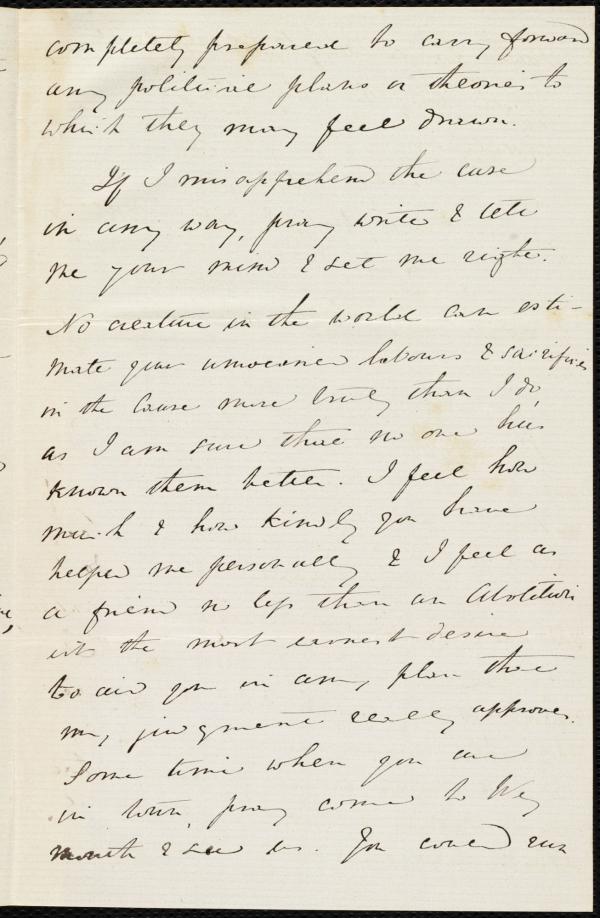 completely prepared to carry forward
any political plans or theories to
which they may feel drawn.
If I misapprehend the case
in any way, pray write & let
me your mind & set me right.
No creature in the world can esti-
mate your unwearied labours & sacrifices
in the cause more truly than I do,
as I am sure that no one has
known them better. I feel how
much & how kindly you have
helped me personally & I feel as
a friend no less than an Abolition
ist the most earnest desire
to aid you in any plan that
my judgment really approves.
Some time when you are
in town, pray come to Wey
mouth & see us. You could run